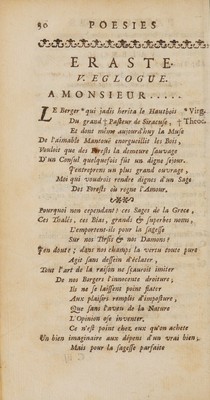 80 POESIES
ERASTE.
V. EGLOGUE.
A MONSIEUR......
LE Berger * qui jadis herita le Hautbois * Virg.
Du grand † Pasteur de Siracuse, † Theoc.
Et dont mesme aujourd'huy la Muse
De l'aimable Mantouë enorgueillit les Bois,
Vouloit que des Forests la demeure sauvage
D'un Consul quelquefois fût un digne sejour.
J'entreprens un plus grand ouvrage,
Moi qui voudrois rendre dignes d'un Sage
Des Forests où regne l'Amour.
Pourquoi non cependant? ces Sages de la Grece,
Ces Thalés, ces Bias, grands & superbes noms,
L'emportent-ils pour la sagesse
Sur nos Tirsis & nos Damons?
J'en doute; dans nos champs la vertu toute pure
Agit sans dessein d'éclater,
Tout l'art de la raison ne sçauroit imiter
De nos Bergers l'innocente droiture;
Ils ne se laissent point flater
Aux plaisirs remplis d'imposture,
Que sans l'aveu de la Nature
L'Opinion ose inventer.
Ce n'est point chez eux qu'on achete
Un bien imaginaire aux dépens d'un vrai bien;
Mais pour la sagesse parfaite